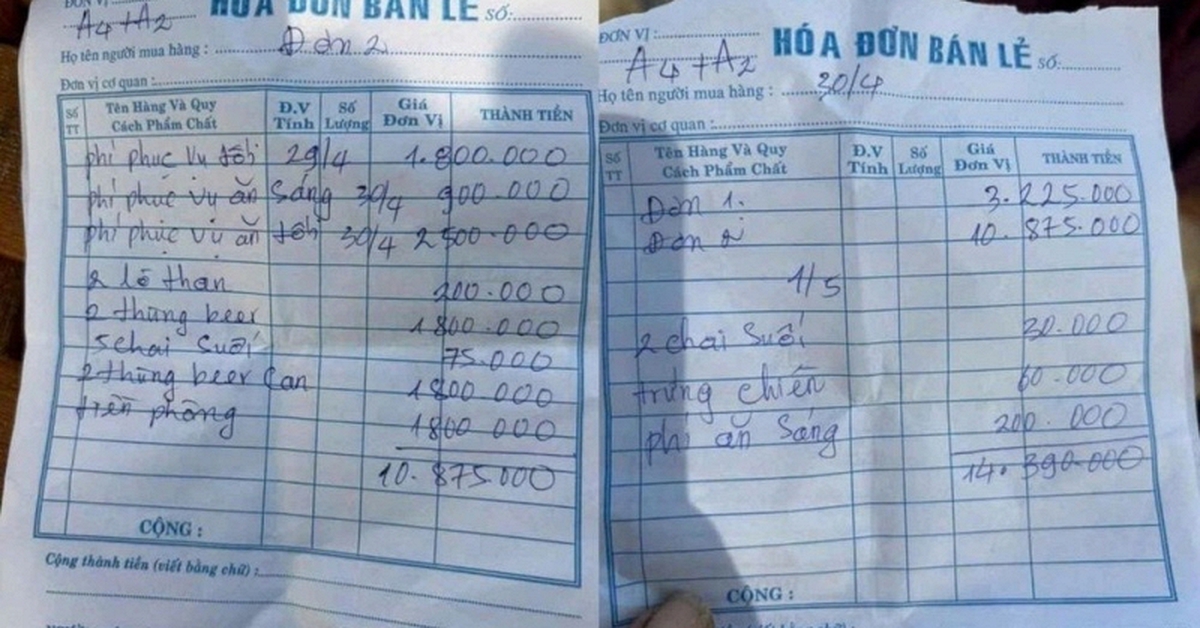 ĐƠN VỊ
A4+A2
HÓA ĐƠN BÁN LẺ SỐ:
Họ tên người mua hàng : Đơn 2
Đơn vị cơ quan :
Số TT Tên Hàng Và Quy Cách Phẩm Chất Đ.V Tính Số Lượng Giá Đơn Vị THÀNH TIỀN
phí phục vụ tối 29/4 1.800.000
phí phục vụ ăn sáng 30/4 900.000
phí phục vụ ăn tối 30/4 2500.000
2 lò than 200.000
2 thùng beer 1800.000
5 chai suối 75.000
2 thùng beer can 1800.000
tiền phòng 1800 000
10.875.000
CỘNG :
Cộng thành tiền (viết bằng chữ) :
ĐƠN VỊ :
A4+A2
HÓA ĐƠN BÁN LẺ SỐ:
Họ tên người mua hàng : 30/4
Đơn vị cơ quan :
Số TT Tên Hàng Và Quy Cách Phẩm Chất Đ.V Tính Số Lượng Giá Đơn Vị THÀNH TIỀN
Đơn 1. 3.225.000
Đơn 2 10.875.000
1/5
2 chai suối 30.000
trứng chiên 60.000
phí ăn sáng 200.000
14.390.000
CỘNG :